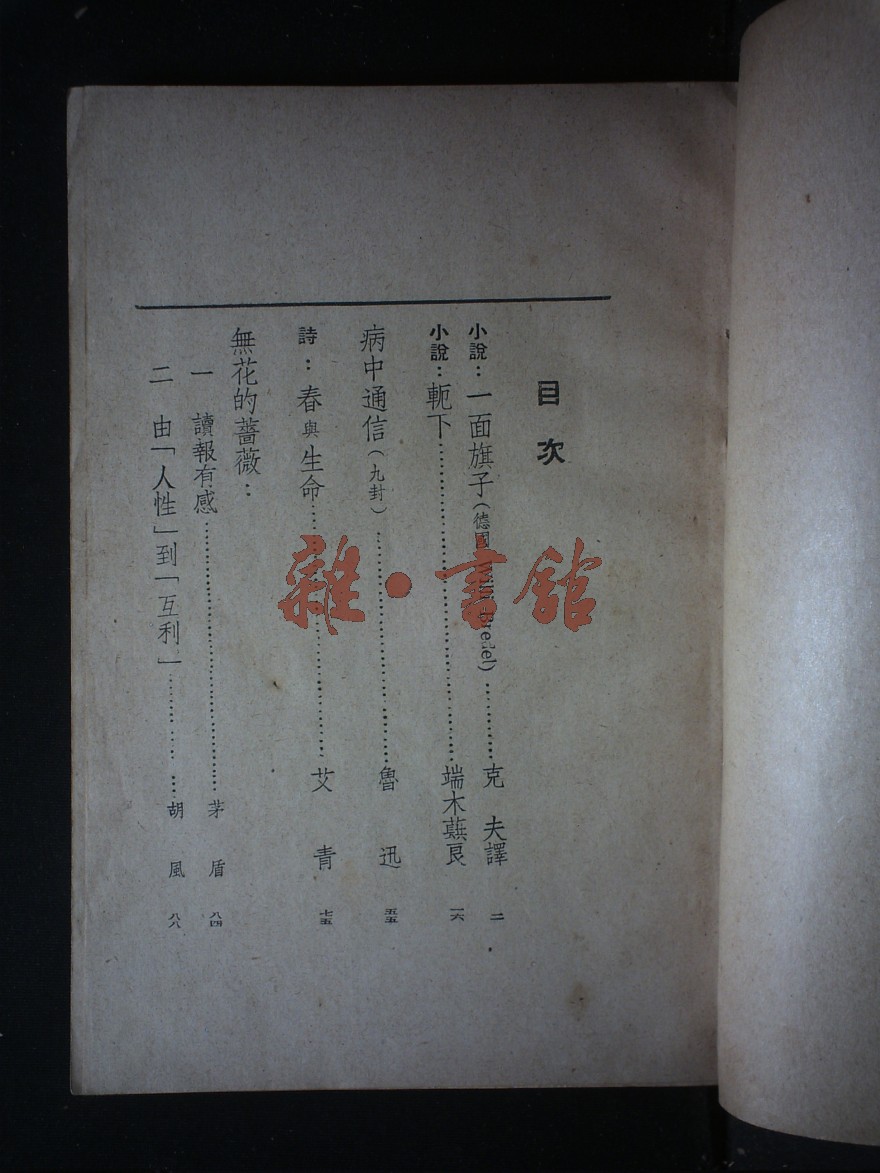 目次
小說：一面旗子（德國 Willi Bredel）…………克夫譯 二
小說：軛下…………端木蕻良 一六
病中通信（九封）…………魯迅 五五
詩：春與生命…………艾青 七五
無花的薔薇：
一 讀報有感…………茅盾 八四
二 由「人性」到「互利」…………胡風 八八
雜·書館